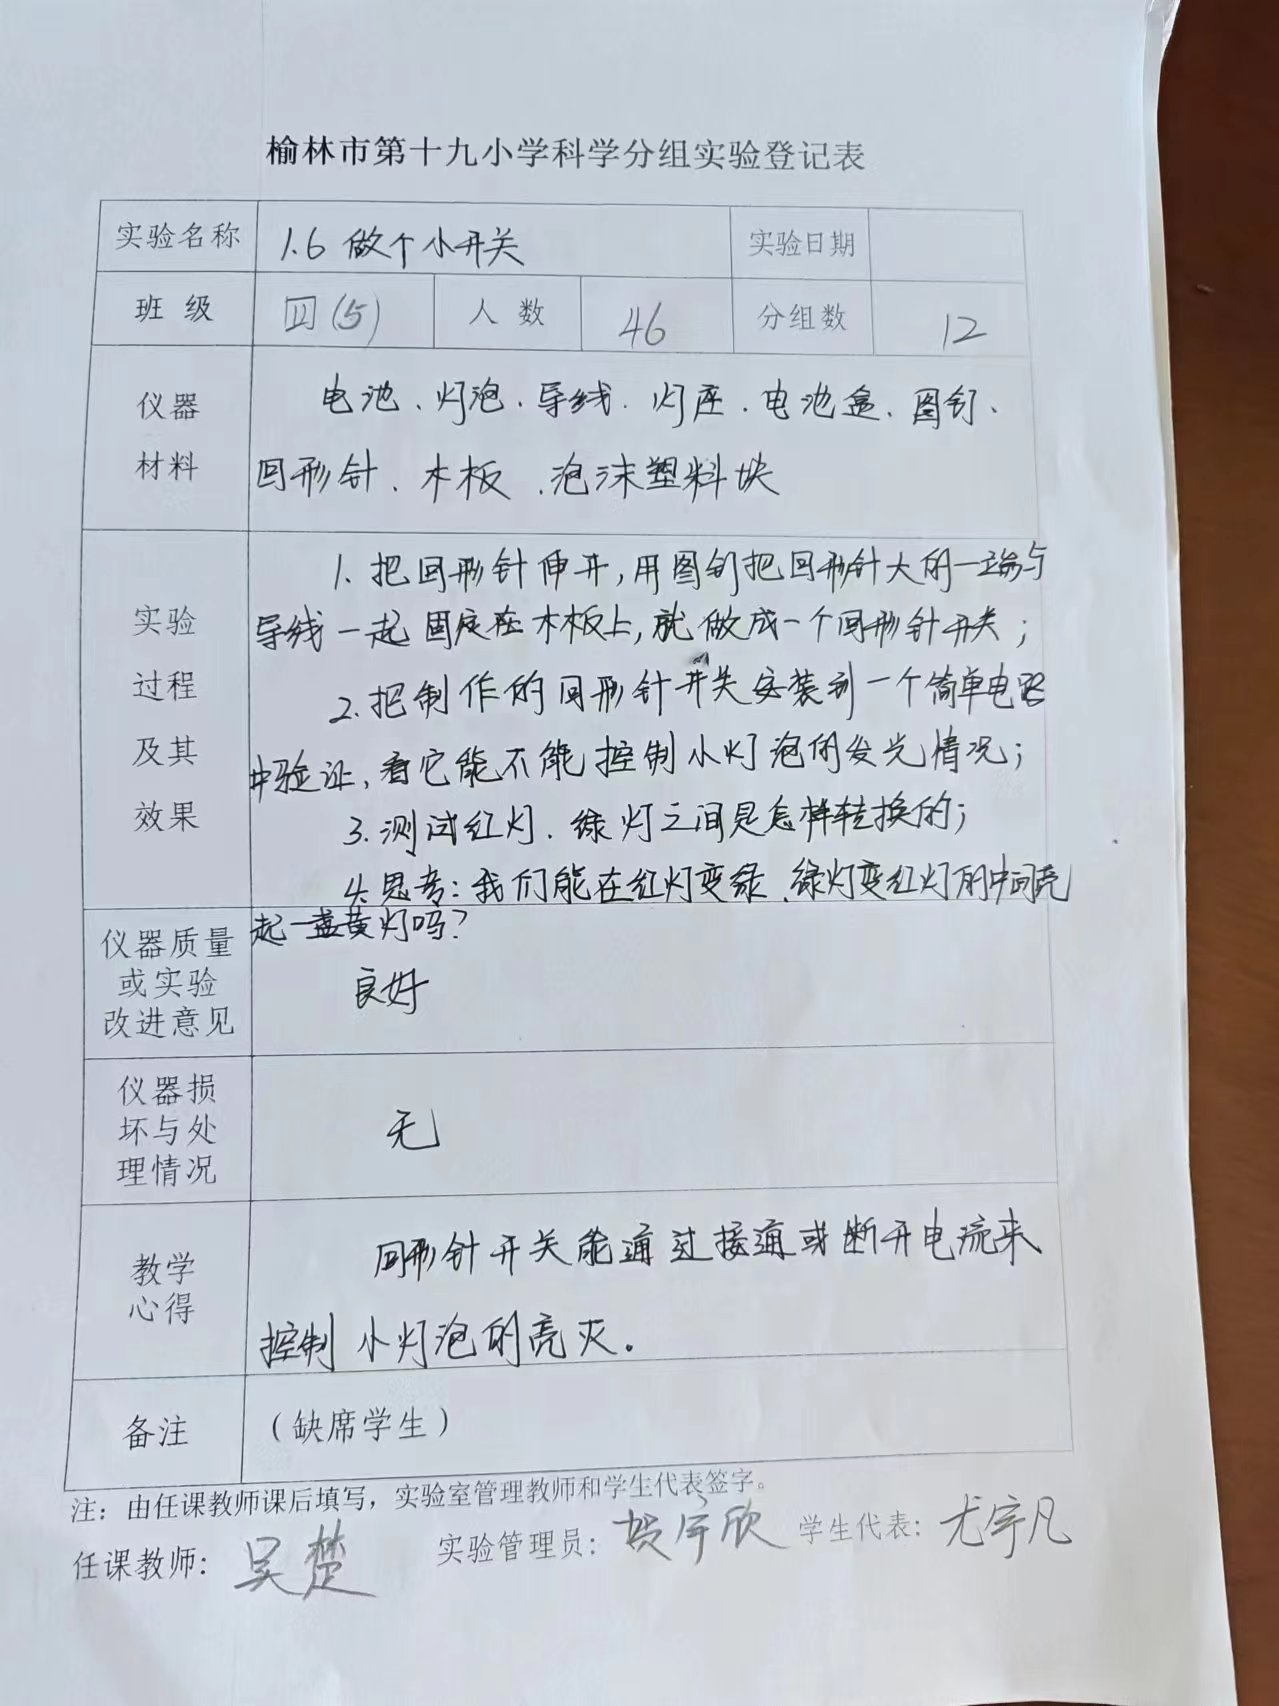 榆林市第十九小学科学分组实验登记表
实验名称 1.6 做个小开关 实验日期
班 级 四(5) 人 数 46 分组数 12
仪器
材料
电池、灯泡、导线、灯座、电池盒、图钉、
回形针、木板、泡沫塑料块
实验
过程
及其
效果
1. 把回形针伸开,用图钉把回形针大的一端与
导线一起固定在木板上,就做成一个回形针开关;
2. 把制作的回形针开关安装到一个简单电路
中验证,看它能不能控制小灯泡的发光情况;
3. 测试红灯、绿灯之间是怎样转换的;
4. 思考:我们能在红灯变绿、绿灯变红灯的中间亮
起一盏黄灯吗?
仪器质量
或实验
改进意见
良好
仪器损
坏与处
理情况
无
教学
心得
回形针开关能通过接通或断开电流来
控制小灯泡的亮灭。
备注 (缺席学生)
注:由任课教师课后填写,实验室管理教师和学生代表签字。
任课教师: 吴楚 实验管理员: 贺宇欣 学生代表: 尤宇凡